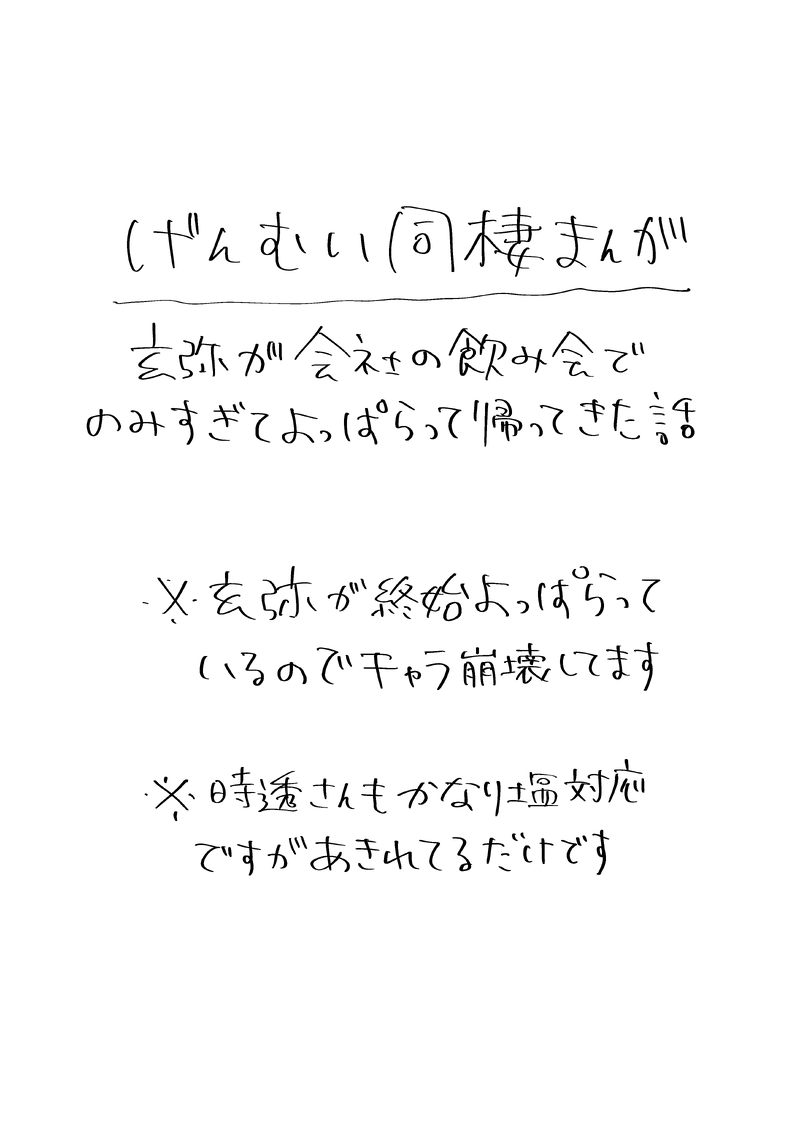 げんむい同棲まんが
玄弥が会社の飲み会で
のみすぎてよっぱらって帰ってきた話
※玄弥が終始よっぱらって
いるのでキャラ崩壊してます
※時透さんもかなり塩対応
ですがあきれてるだけです